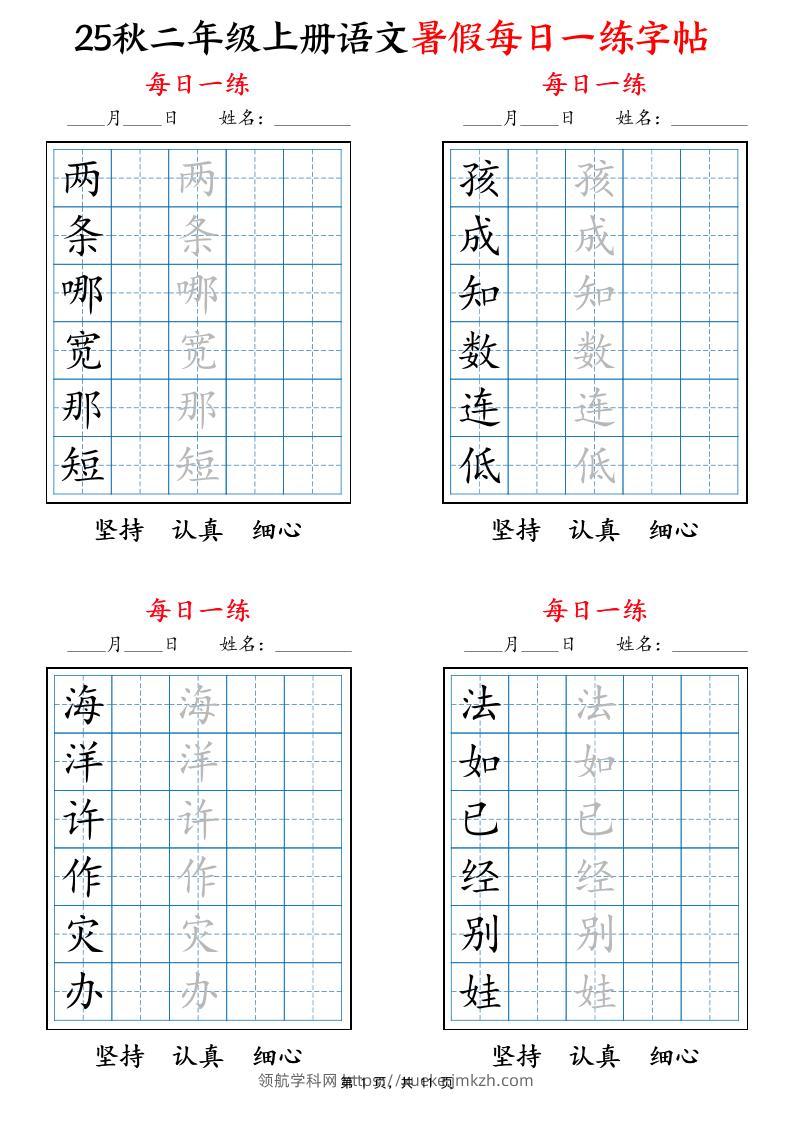 25秋二年级上册语文暑假每日一练字帖
每日一练
____月____日 姓名：________
两 两
条 条
哪 哪
宽 宽
那 那
短 短
坚持 认真 细心
每日一练
____月____日 姓名：________
孩 孩
成 成
知 知
数 数
连 连
低 低
坚持 认真 细心
每日一练
____月____日 姓名：________
海 海
洋 洋
许 许
作 作
灾 灾
办 办
坚持 认真 细心
每日一练
____月____日 姓名：________
法 法
如 如
已 已
经 经
别 别
娃 娃
坚持 认真 细心
领航学科网
第 1 页，共 11 页